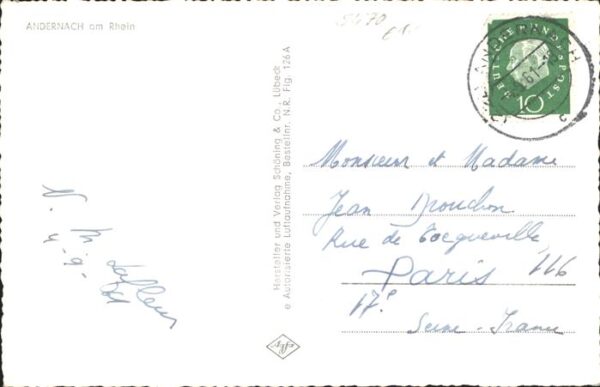 ANDERNACH am Rhein
Hersteller und Verlag Schöning & Co., Lübeck
e Autorisierte Luftaufnahme, Bestellnr. N.R. Flg. 126A
DEUTSCHE BUNDESPOST
10
ANDERNACH
61
Monsieur et Madame
Jean Drouchon
Rue de Tocqueville
116
Paris
17e
Seine - France
4-9-61
Agfa